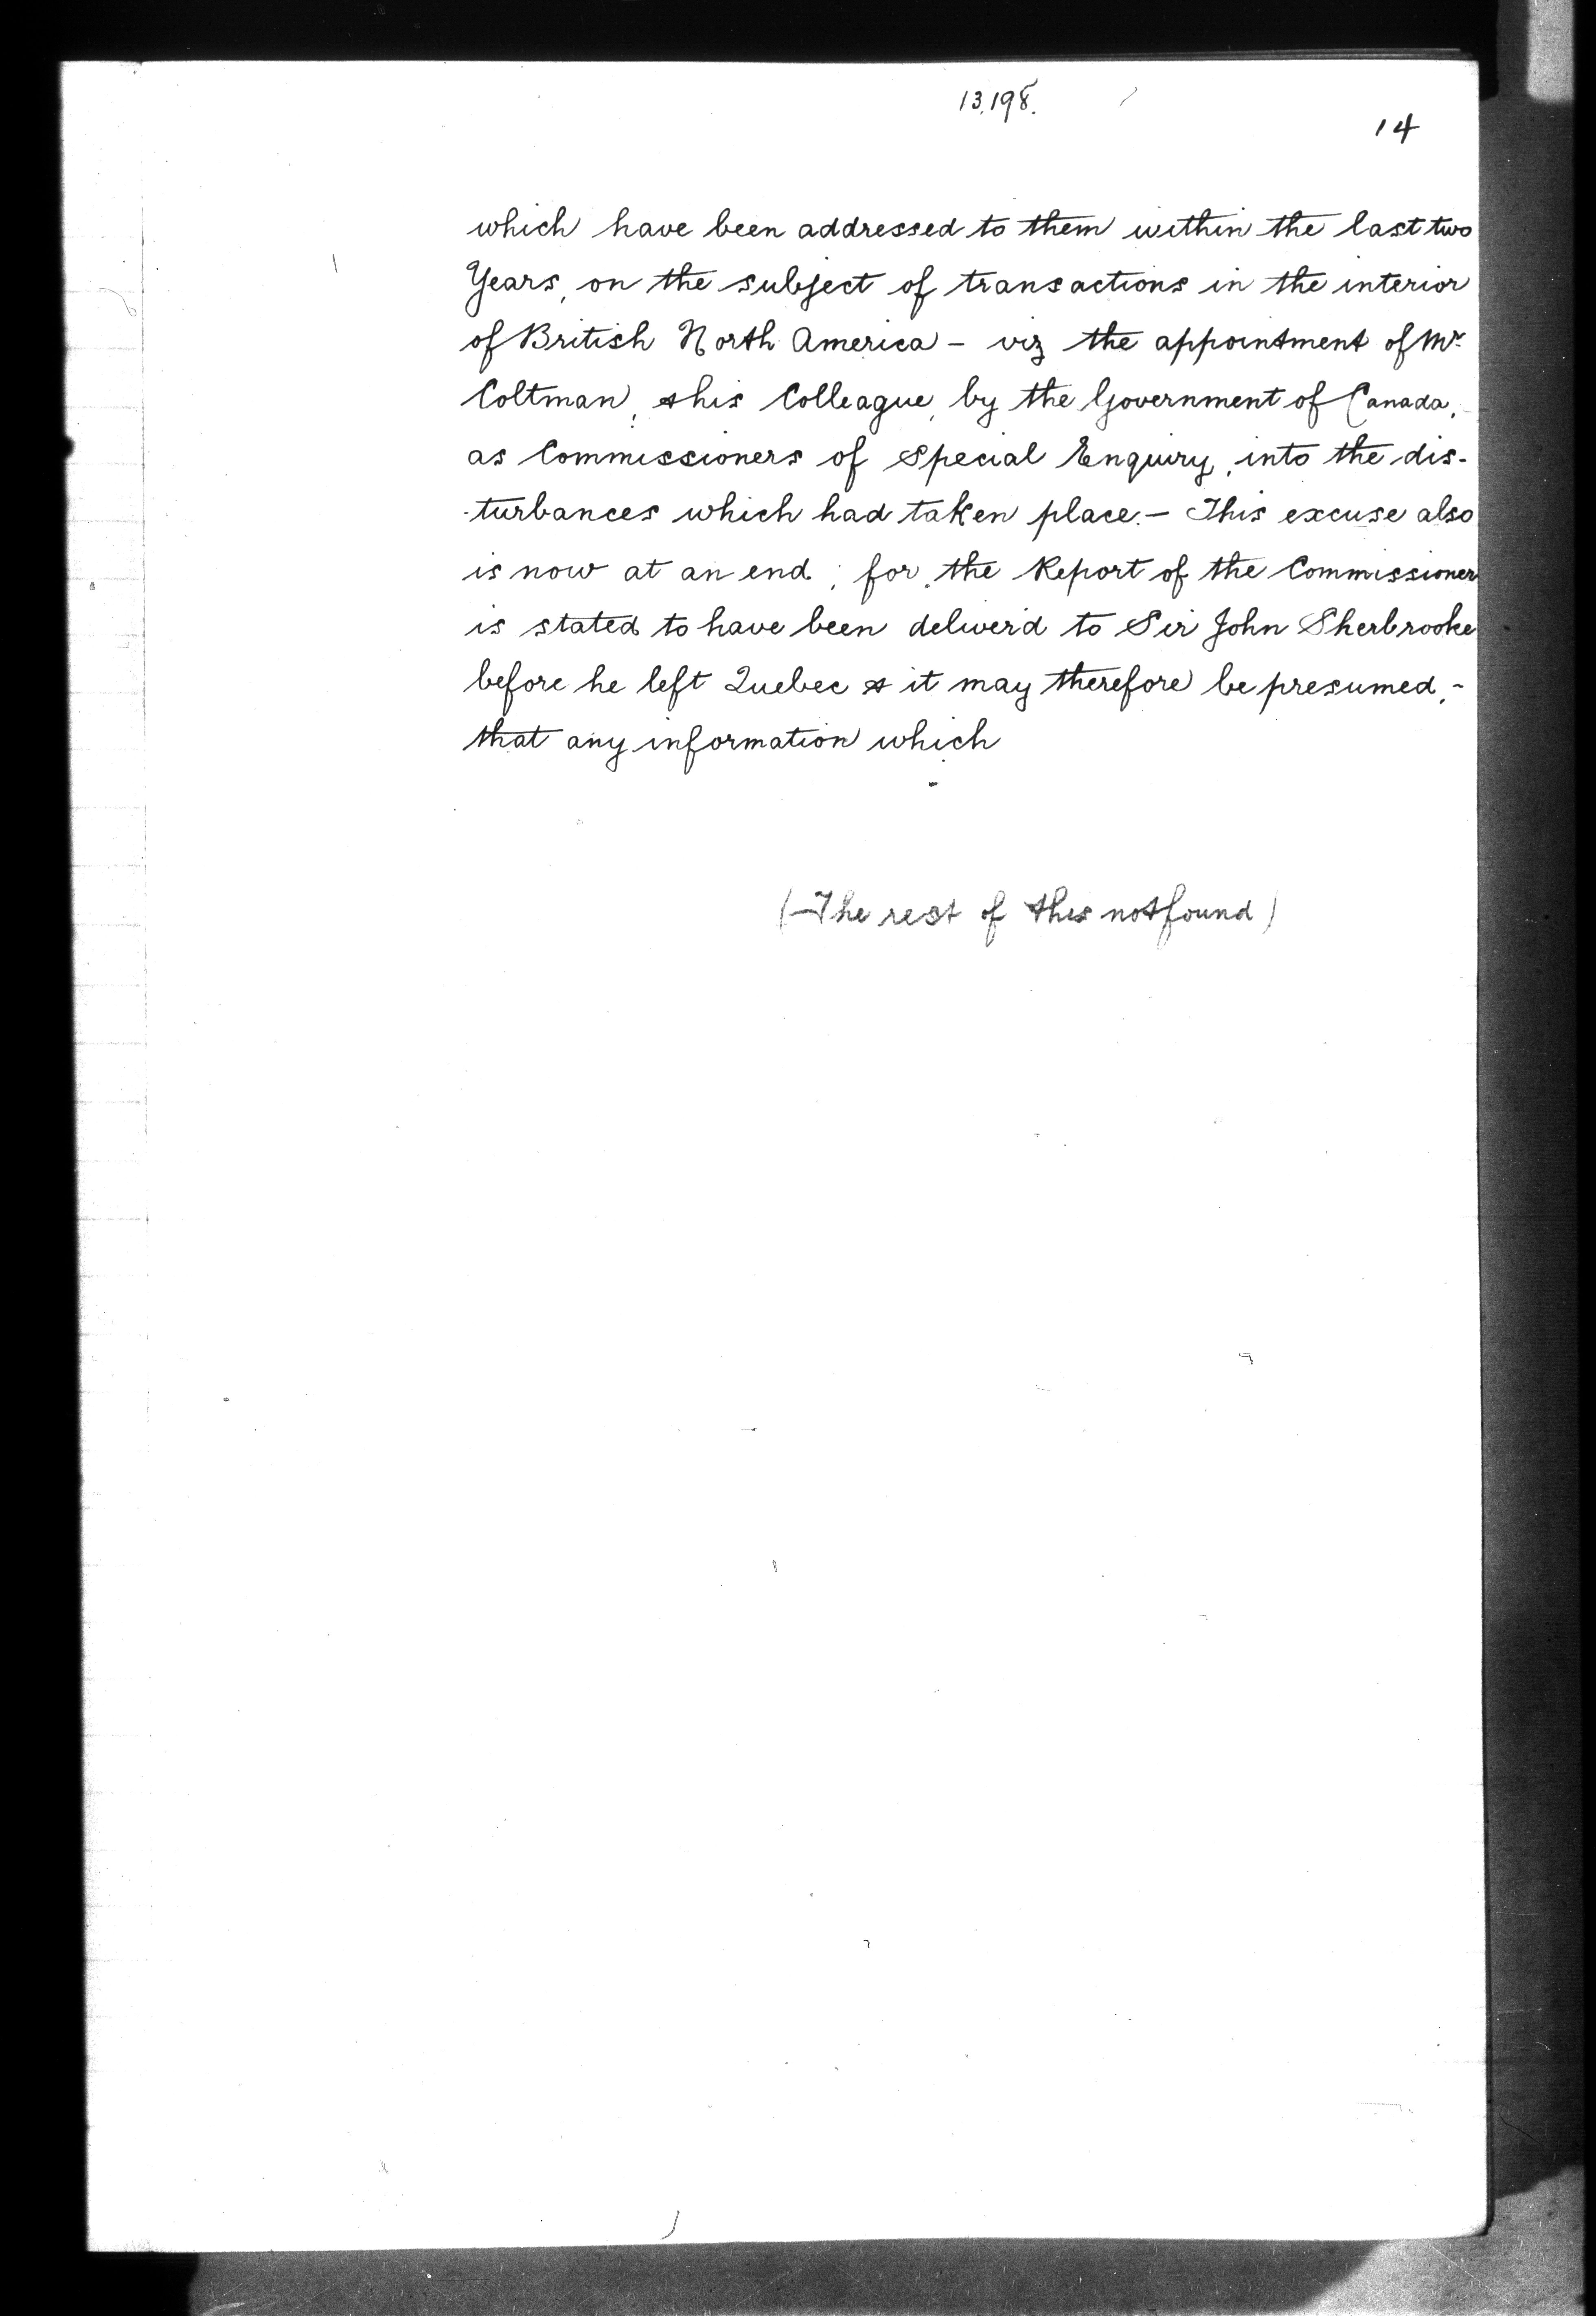 13,198.
14
which have been addressed to them within the last two
Years, on the subject of transactions in the interior
of British North America - viz the appointment of Mr
Coltman, & his Colleague, by the Government of Canada,
as Commissioners of Special Enquiry, into the dis-
-turbances which had taken place. - This excuse also
is now at an end; for, the Report of the Commissioner
is stated to have been deliver'd to Sir John Sherbrooke
before he left Quebec & it may therefore be presumed, -
that any information which
(The rest of this not found)